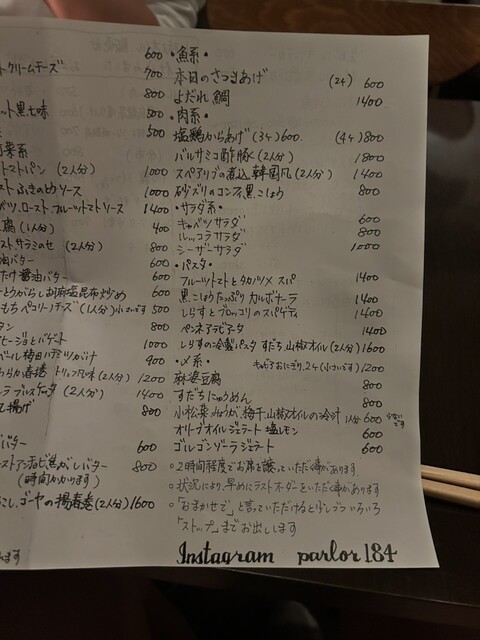 600
クリームチーズ 700
800
ット黒七味 800
500
菜系
トマトパン (2人分) 1000
スト ふきのとうソース 1000
ベツ、ロースト、フルーツトマトソース 1400
腐 (1人分) 400
ストサラミのせ (2人分) 800
油バター 600
だけ醤油バター 600
とうがらし胡麻塩昆布炒め 600
もちペコリーノチーズ (1人分)小さいです 500
タン 800
ヒージョとバゲット 1000
900
らか春巻 トリュフ風味 (2人分) 1200
ラ ブルスケッタ (2人分) 1400
揚げ 800
バター 600
ーストアンチョビ焦がしバター 800
(時間かかります)
こし、ゴーヤの揚春巻 (2人分) 1600
ます
・魚系・
本日のさつまあげ (2ケ) 600
よだれ鯛 1400
・肉系・
塩鶏からあげ (3ケ) 600. (4ケ) 800
バルサミコ酢豚 (2人分) 1800
スペアリブの煮込、韓国風 (2人分) 1400
砂ズリのコンフィ、黒こしょう 800
・サラダ系・
キャベツサラダ 600
ルッコラサラダ 800
シーザーサラダ 1000
・パスタ・
フルーツトマトとタカノツメ スパ 1400
黒こしょうたっぷり カルボナーラ 1400
しらすとブロッコリのスパゲティ 1400
ペンネアラビアータ 1400
しらすの冷製パスタ すだち、山椒オイル (2人分) 1600
・〆系・
麻婆豆腐 1200
すだちにゅうめん 800
小松菜、みょうが、梅干、山椒オイルの冷汁 1人分 600 少ないです
オリーブオイルジェラート 塩レモン 600
ゴルゴンゾーラジェラート 600
○2時間程度でお席を譲っていただく事があります。
○状況により、早めにラストオーダーをいただく事があります
○「おまかせで」と言っていただけると少しづついろいろ
「ストップ」までお出しします
Instagram parlor184